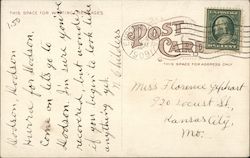 THIS SPACE FOR WRITING MESSAGES
POST CARD
THIS SPACE FOR ADDRESS ONLY
1909
Hodson, Hodson
Hurra for Hodson,
Come on lets go to
Hodson. I'm sure you've
recovered, but wonder
if you begin to look like
anything yet.
Childers
Miss Florence
720 Locust St,
Kansas City,
Mo.